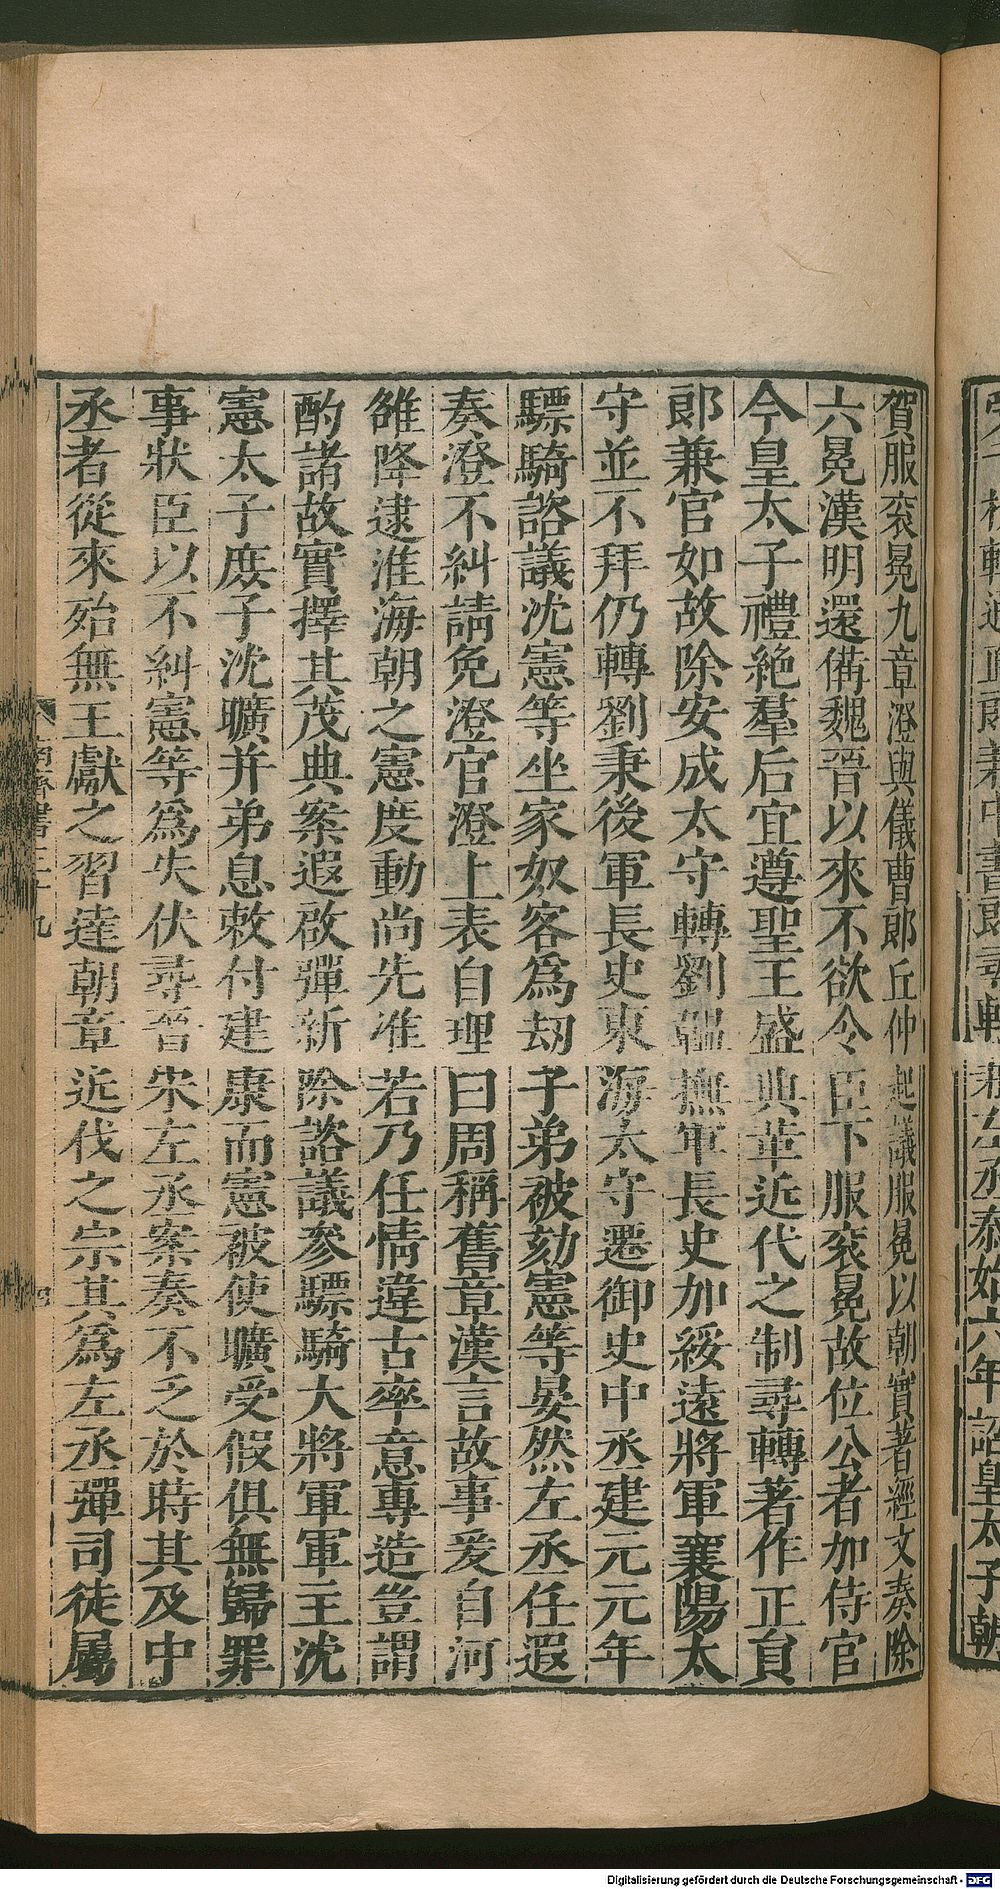 兼中書郎尋轉兼左丞泰始六年詔皇太子朝
賀服衮冕九章澄與儀曹郎丘仲起議服冕以朝實著經文奏除
六冕漢明還備魏晉以來不欲令臣下服衮冕故位公者加侍官
今皇太子禮絶羣后宜遵聖王盛典革近代之制尋轉著作正員
郎兼官如故除安成太守轉劉韞撫軍長史加綏遠將軍襄陽太
守並不拜仍轉劉秉後軍長史東海太守遷御史中丞建元元年
驃騎諮議沈憲等坐家奴客爲刼子弟被劾憲等晏然左丞任遐
奏澄不糾請免澄官澄上表自理曰周稱舊章漢言故事爰自河
雒降逮淮海朝之憲度動尚先准若乃任情違古率意專造豈謂
酌諸故實擇其茂典案遐啟彈新除諮議參驃騎大將軍軍主沈
憲太子庶子沈曠并弟息敕付建康而憲被使曠受假俱無歸罪
事狀臣以不糾憲等爲失伏尋晉宋左丞案奏不乏於時其及中
丞者從來殆無王獻之習達朝章近代之宗其爲左丞彈司徒屬
南齊書三十九
Digitalisierung gefördert durch die Deutsche Forschungsgemeinschaft - DFG